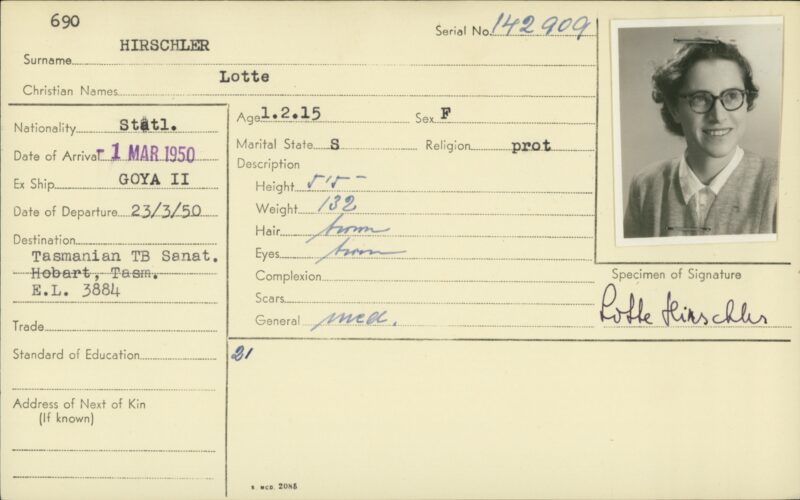 690
Serial No. 142909
Surname HIRSCHLER
Christian Names Lotte
Nationality Statl.
Date of Arrival - 1 MAR 1950
Ex Ship GOYA II
Date of Departure 23/3/50
Destination
Tasmanian TB Sanat.
Hobart, Tasm.
E.L. 3884
Trade
Standard of Education
Address of Next of Kin
(If known)
Age 1.2.15 Sex F
Marital State S Religion prot
Description
Height 5'5
Weight 132
Hair brown
Eyes brown
Complexion
Scars
General med.
21
Specimen of Signature
Lotte Hirschler
S. MCD. 2085